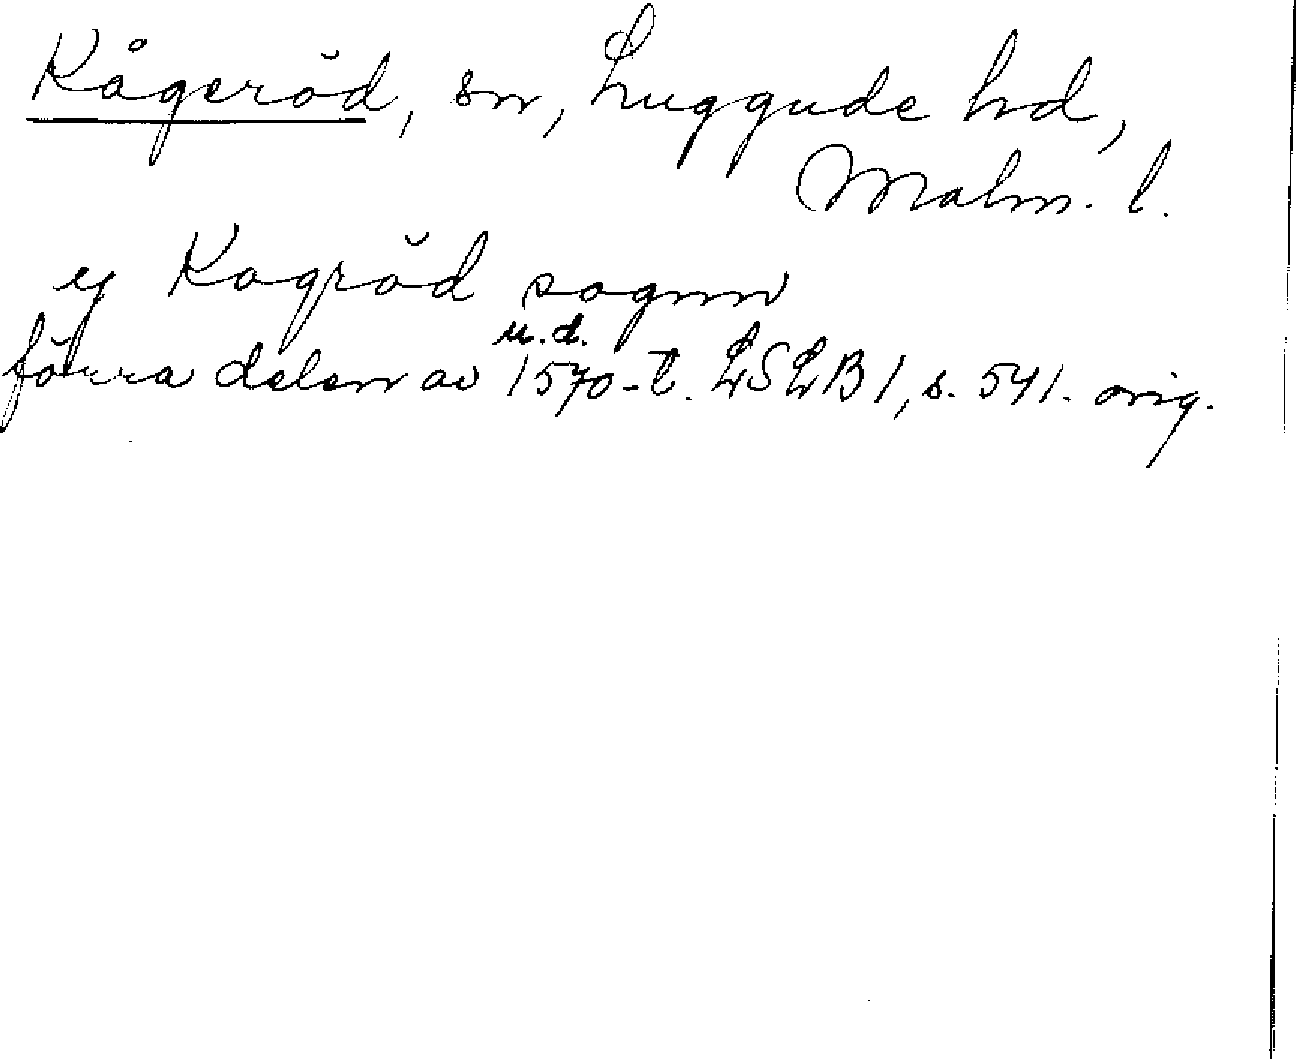 Kågeröd, sn, Luggude hd,
Malm. l.
ij Kagröd sognn
u.d.
förra delen av 1570-t. LSLB 1, s. 541. orig.